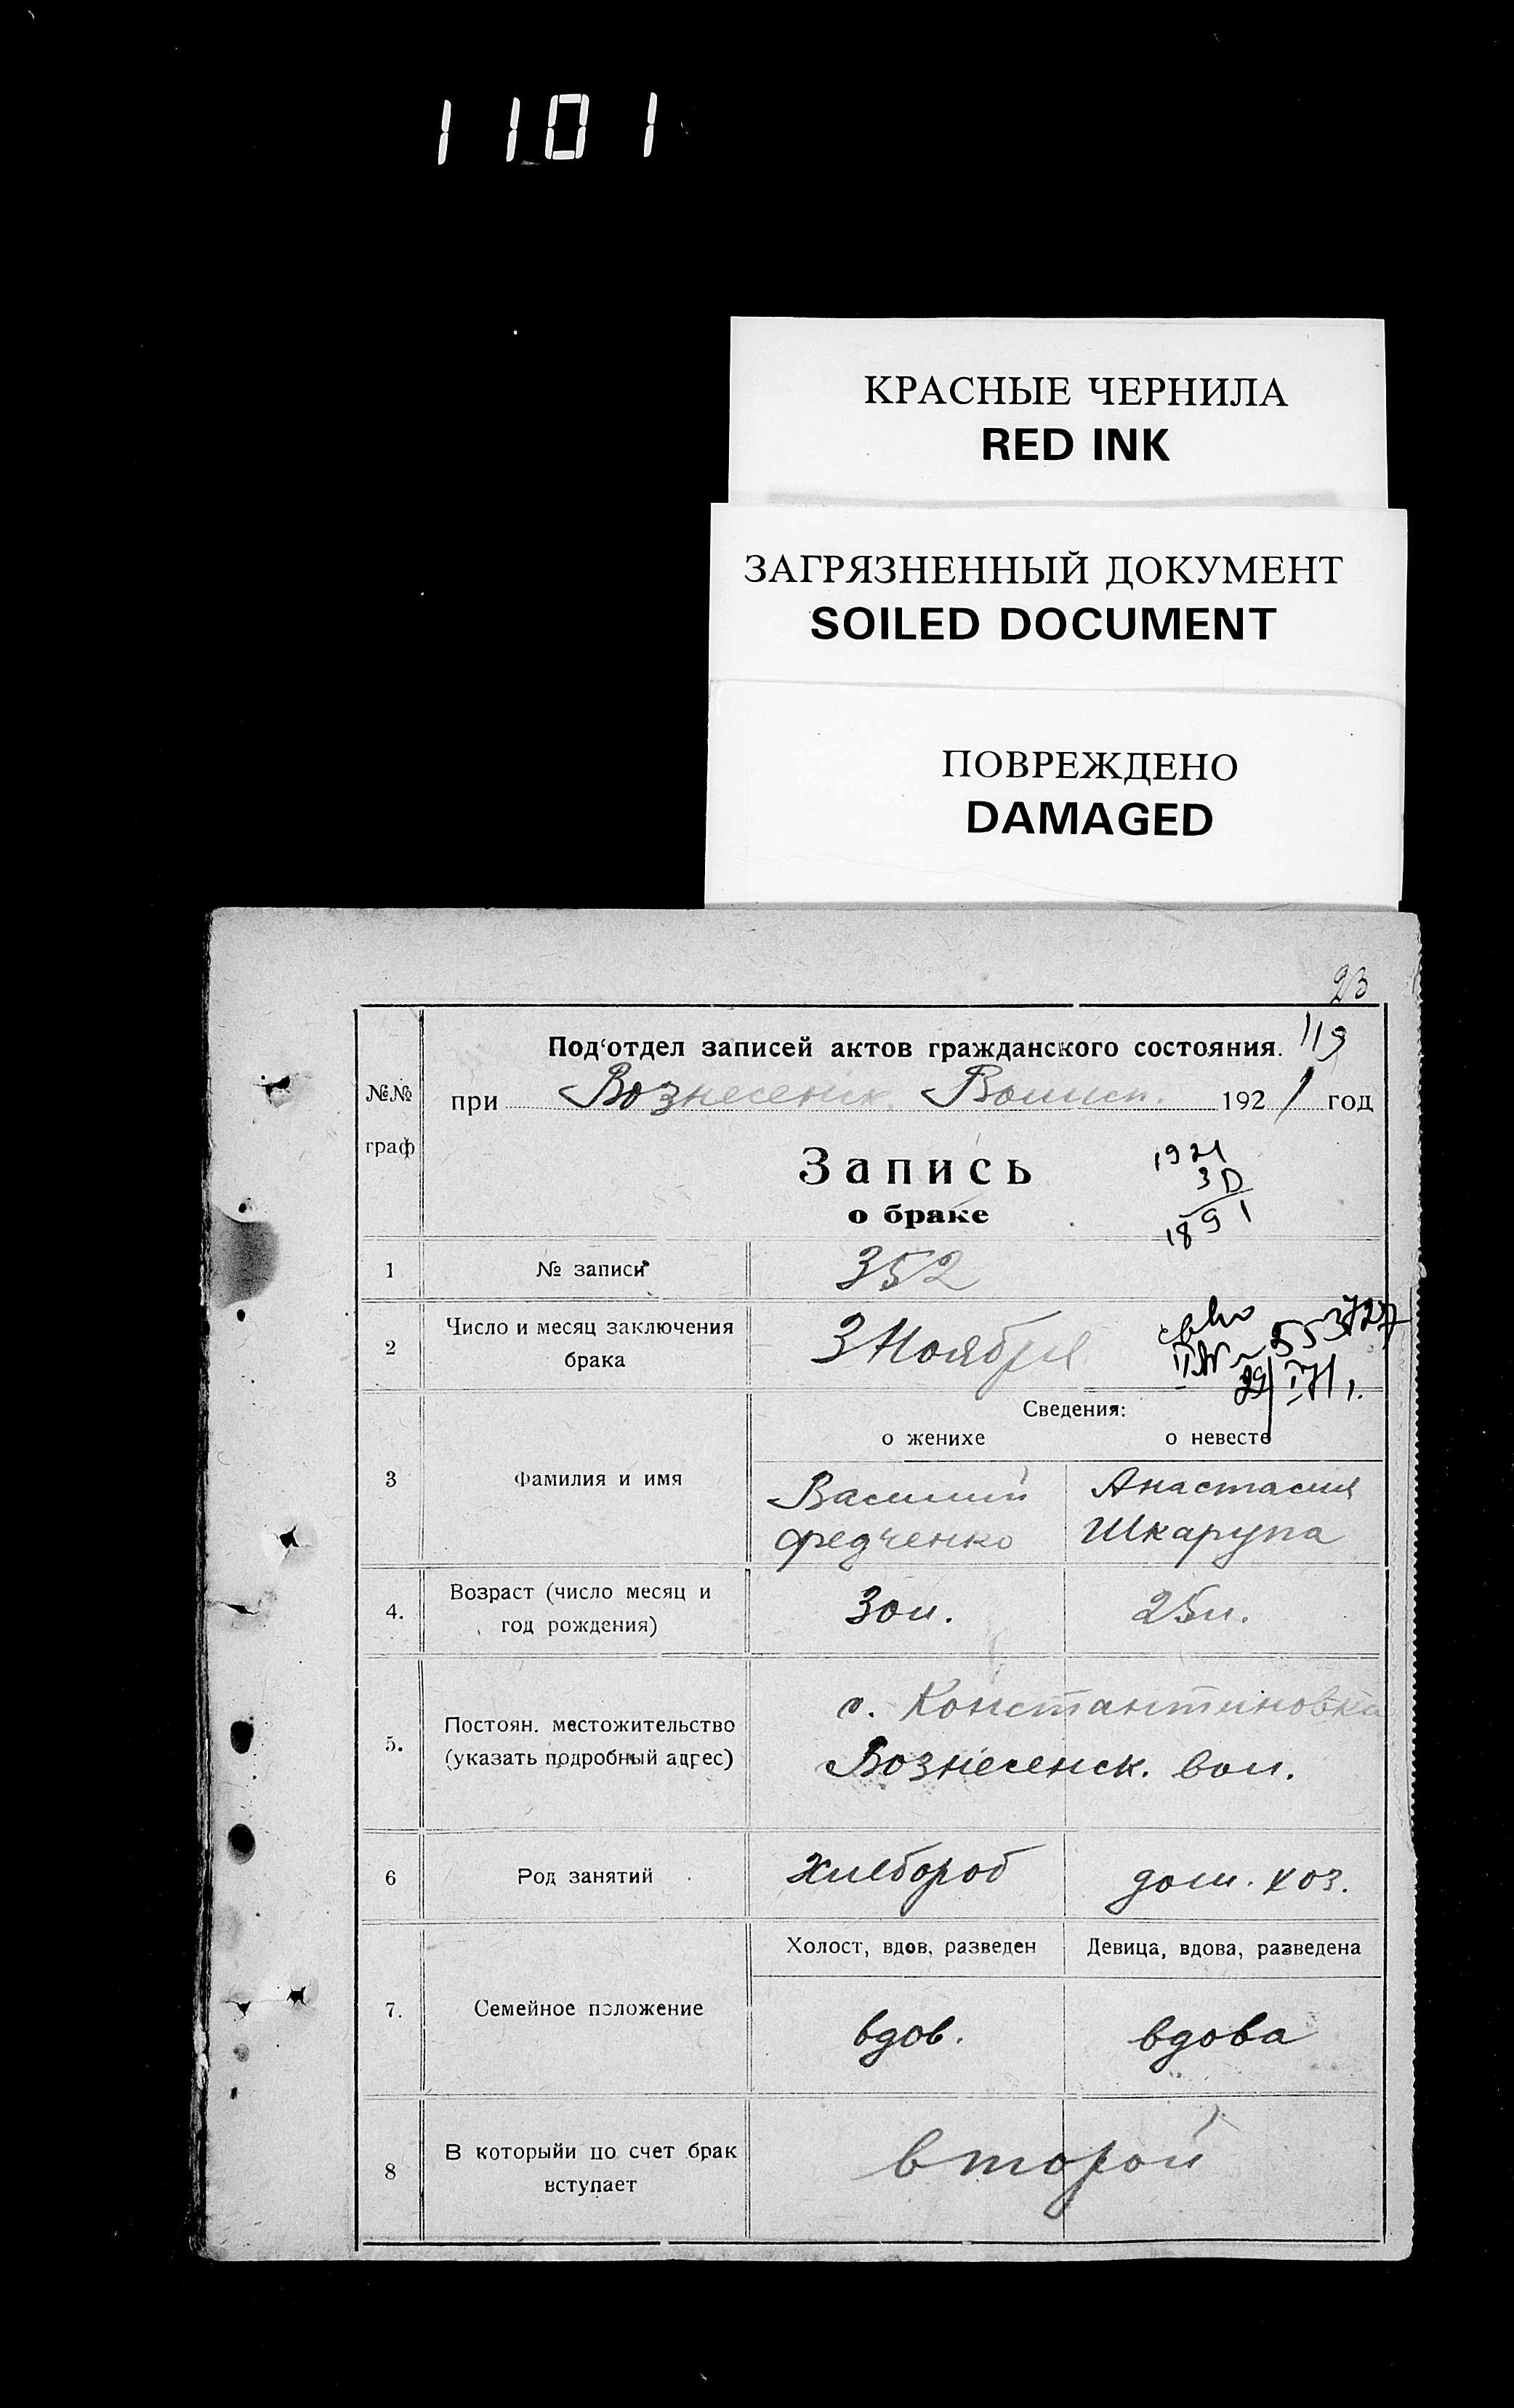 1101
КРАСНЫЕ ЧЕРНИЛА
RED INK
ЗАГРЯЗНЕННЫЙ ДОКУМЕНТ
SOILED DOCUMENT
ПОВРЕЖДЕНО
DAMAGED
23
119
Под'отдел записей актов гражданского состояния.
№№ граф
при Вознесенск. Волисп. 1921 год
Запись
о браке
1921
30
1891
1 № записи 352
2 Число и месяц заключения брака 3 Ноября
553727
Сведения:
о женихе о невесте
3 Фамилия и имя
Василий Анастасия
Федченко Шкарупа
4. Возраст (число месяц и
год рождения)
30 л. 25 л.
5. Постоян. местожительство
(указать подробный адрес)
с. Константиновка
Вознесенск. вол.
6 Род занятий Хлебороб дом. хоз.
Холост, вдов, разведен Девица, вдова, разведена
7. Семейное положение вдов. вдова
8 В которыйи по счет брак
вступает
второй